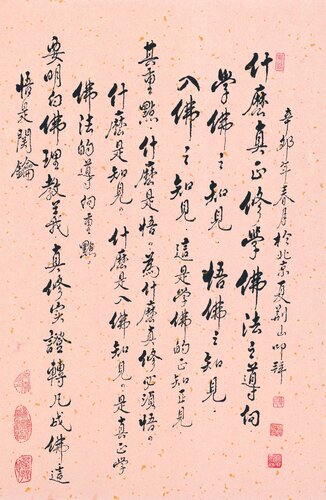 辛卯年春月於北京夏荆山叩拜
什麼真正修學佛法之導向
學佛之知見．悟佛之知見．
入佛之知見．這是學佛的正知正見
其重點．什麼是悟．為什麼真修必須悟．
什麼是知見．什麼是入佛知見．是真正學
佛法的導向重點．
要明白佛理教義真修實證轉凡成佛這
悟是關鑰